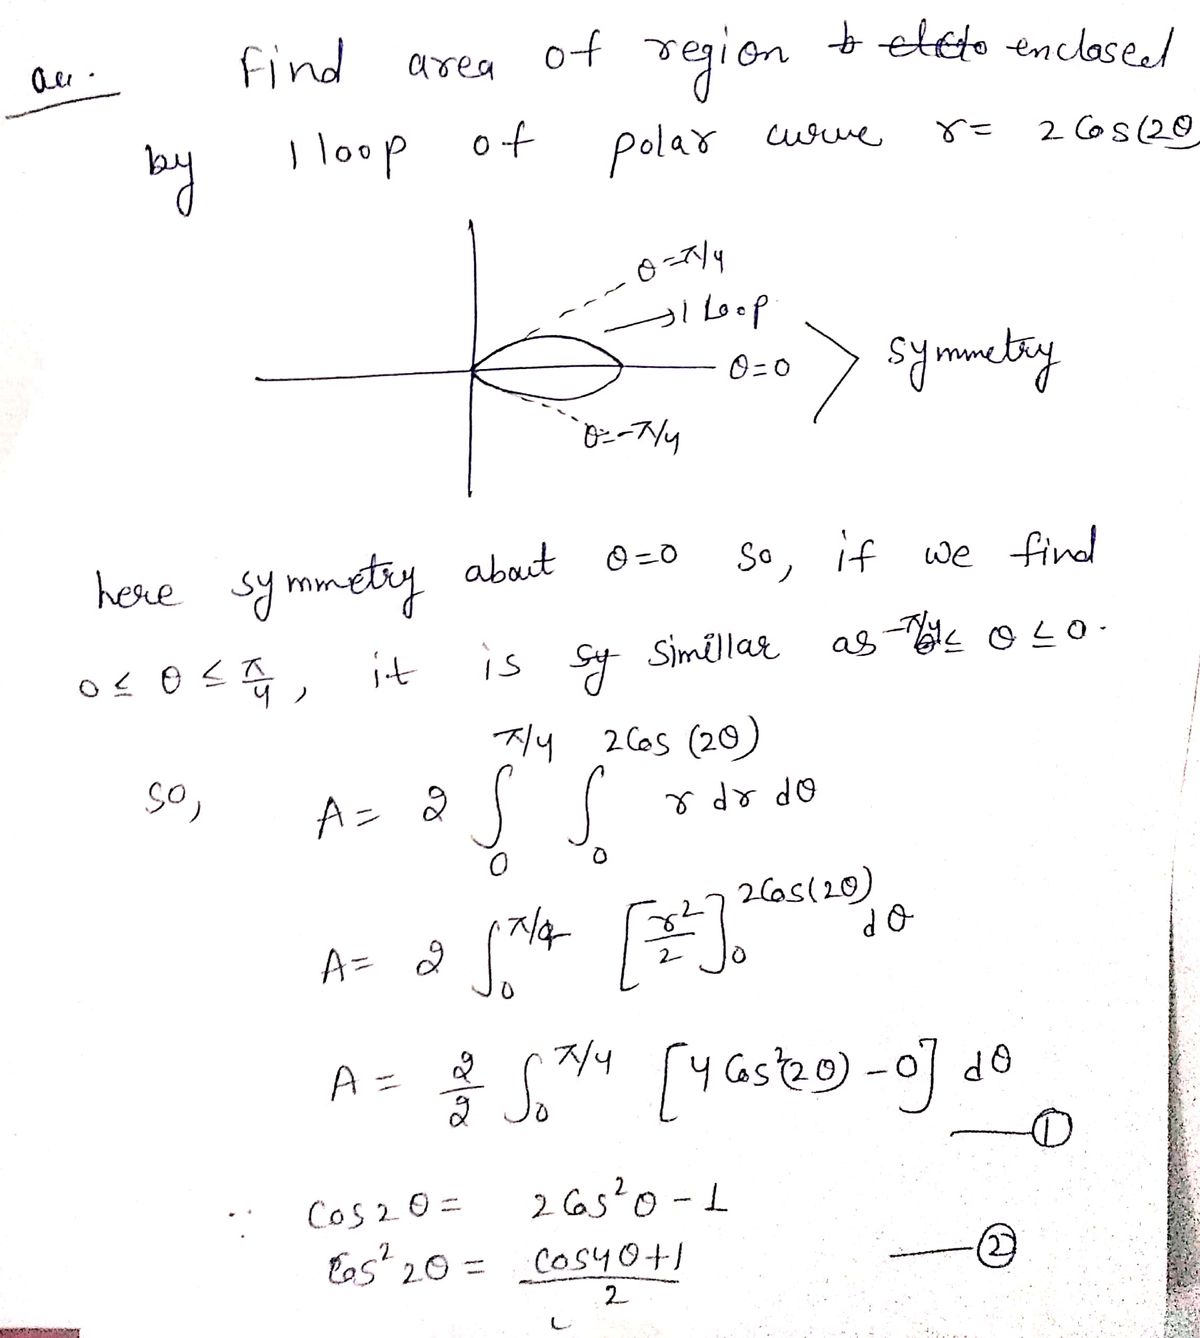 Que. Find area of region enclosed
by 1 loop of polar curve r = 2 Cos(2θ)
θ=π/4
→ 1 Loop
θ=0
symmetry
θ=-π/4
here symmetry about θ=0 so, if we find
0 ≤ θ ≤ π/4, it is simillar as -π/4 ≤ θ ≤ 0.
so, A = 2 ∫₀^{π/4} ∫₀^{2Cos(2θ)} r dr dθ
A = 2 ∫₀^{π/4} [r²/2]₀^{2Cos(2θ)} dθ
A = 2/2 ∫₀^{π/4} [4 Cos²(2θ) - 0] dθ —①
∵ Cos2θ = 2Cos²θ - 1
Cos²2θ = (cos4θ+1)/2 —②